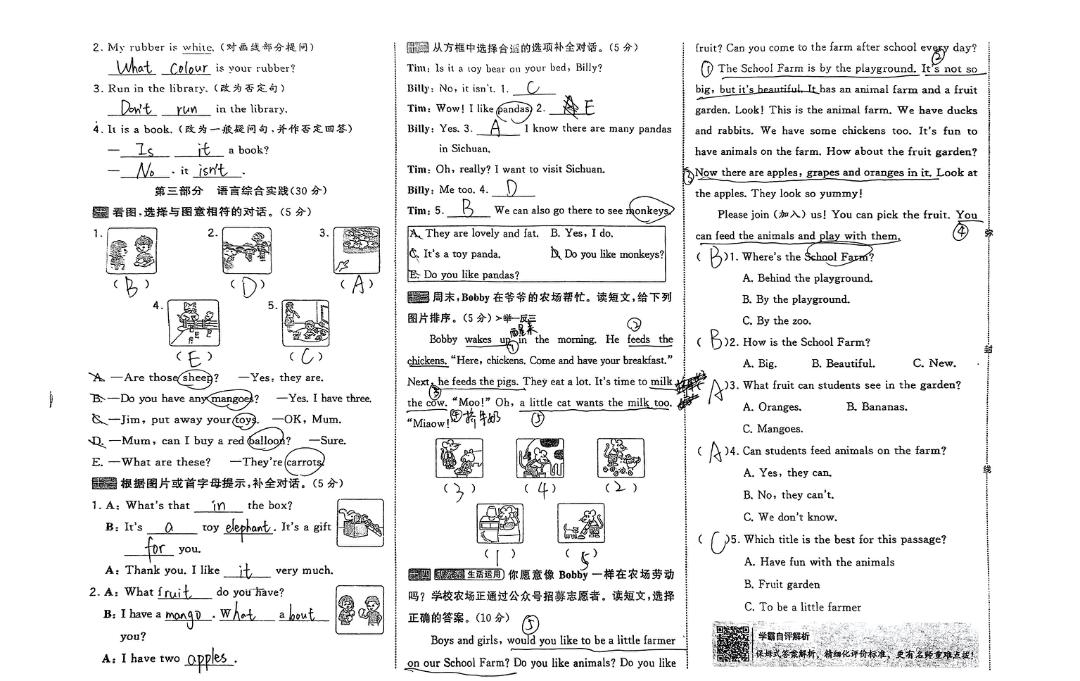 2. My rubber is white.(对画线部分提问)
What colour is your rubber?
3. Run in the library.(改为否定句)
Don't run in the library.
4. It is a book.(改为一般疑问句,并作否定回答)
— Is it a book?
— No , it isn't .
第三部分 语言综合实践(30分)
看图,选择与图意相符的对话。(5分)
1. 2. 3.
(B) (D) (A)
4. 5.
(E) (C)
A. —Are those sheep? —Yes, they are.
B. —Do you have any mangoes? —Yes. I have three.
C. —Jim, put away your toys. —OK, Mum.
D. —Mum, can I buy a red balloon? —Sure.
E. —What are these? —They're carrots.
根据图片或首字母提示,补全对话。(5分)
1. A: What's that in the box?
B: It's a toy elephant. It's a gift
for you.
A: Thank you. I like it very much.
2. A: What fruit do you have?
B: I have a mango . What about
you?
A: I have two apples .
从方框中选择合适的选项补全对话。(5分)
Tim: Is it a toy bear on your bed, Billy?
Billy: No, it isn't. 1. C
Tim: Wow! I like pandas. 2. E
Billy: Yes. 3. A I know there are many pandas
in Sichuan.
Tim: Oh, really? I want to visit Sichuan.
Billy: Me too. 4. D
Tim: 5. B We can also go there to see monkeys.
A. They are lovely and fat. B. Yes, I do.
C. It's a toy panda. D. Do you like monkeys?
E. Do you like pandas?
周末,Bobby 在爷爷的农场帮忙。读短文,给下列
图片排序。(5分)>举一反三
Bobby wakes up in the morning. He feeds the
①
②
chickens. "Here, chickens. Come and have your breakfast."
Next, he feeds the pigs. They eat a lot. It's time to milk
③
the cow. "Moo!" Oh, a little cat wants the milk too.
"Miaow! ④ 挤牛奶 ⑤
(3) (4) (2)
(1) (5)
生活运用 你愿意像 Bobby 一样在农场劳动
吗?学校农场正通过公众号招募志愿者。读短文,选择
正确的答案。(10分)
⑤
Boys and girls, would you like to be a little farmer
on our School Farm? Do you like animals? Do you like
fruit? Can you come to the farm after school every day?
① The School Farm is by the playground. It's not so
②
big, but it's beautiful. It has an animal farm and a fruit
garden. Look! This is the animal farm. We have ducks
and rabbits. We have some chickens too. It's fun to
have animals on the farm. How about the fruit garden?
③ Now there are apples, grapes and oranges in it. Look at
the apples. They look so yummy!
Please join (加入) us! You can pick the fruit. You
can feed the animals and play with them. ④
(B)1. Where's the School Farm?
A. Behind the playground.
B. By the playground.
C. By the zoo.
(B)2. How is the School Farm?
A. Big. B. Beautiful. C. New.
(A)3. What fruit can students see in the garden?
A. Oranges. B. Bananas.
C. Mangoes.
(A)4. Can students feed animals on the farm?
A. Yes, they can.
B. No, they can't.
C. We don't know.
(C)5. Which title is the best for this passage?
A. Have fun with the animals
B. Fruit garden
C. To be a little farmer
学霸自评解析
保姆式答案解析,精细化评价标准,更有名师重难点拨!
弥
封
线